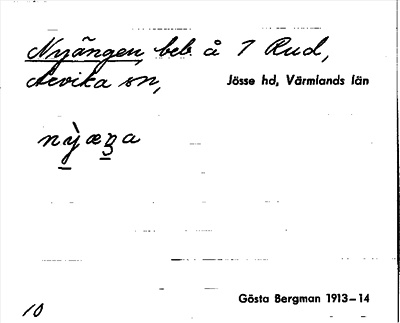 Nyängen, beb. å 7 Rud,
Arvika sn,
Jösse hd, Värmlands län
nỳæŋa
Gösta Bergman 1913-14
10